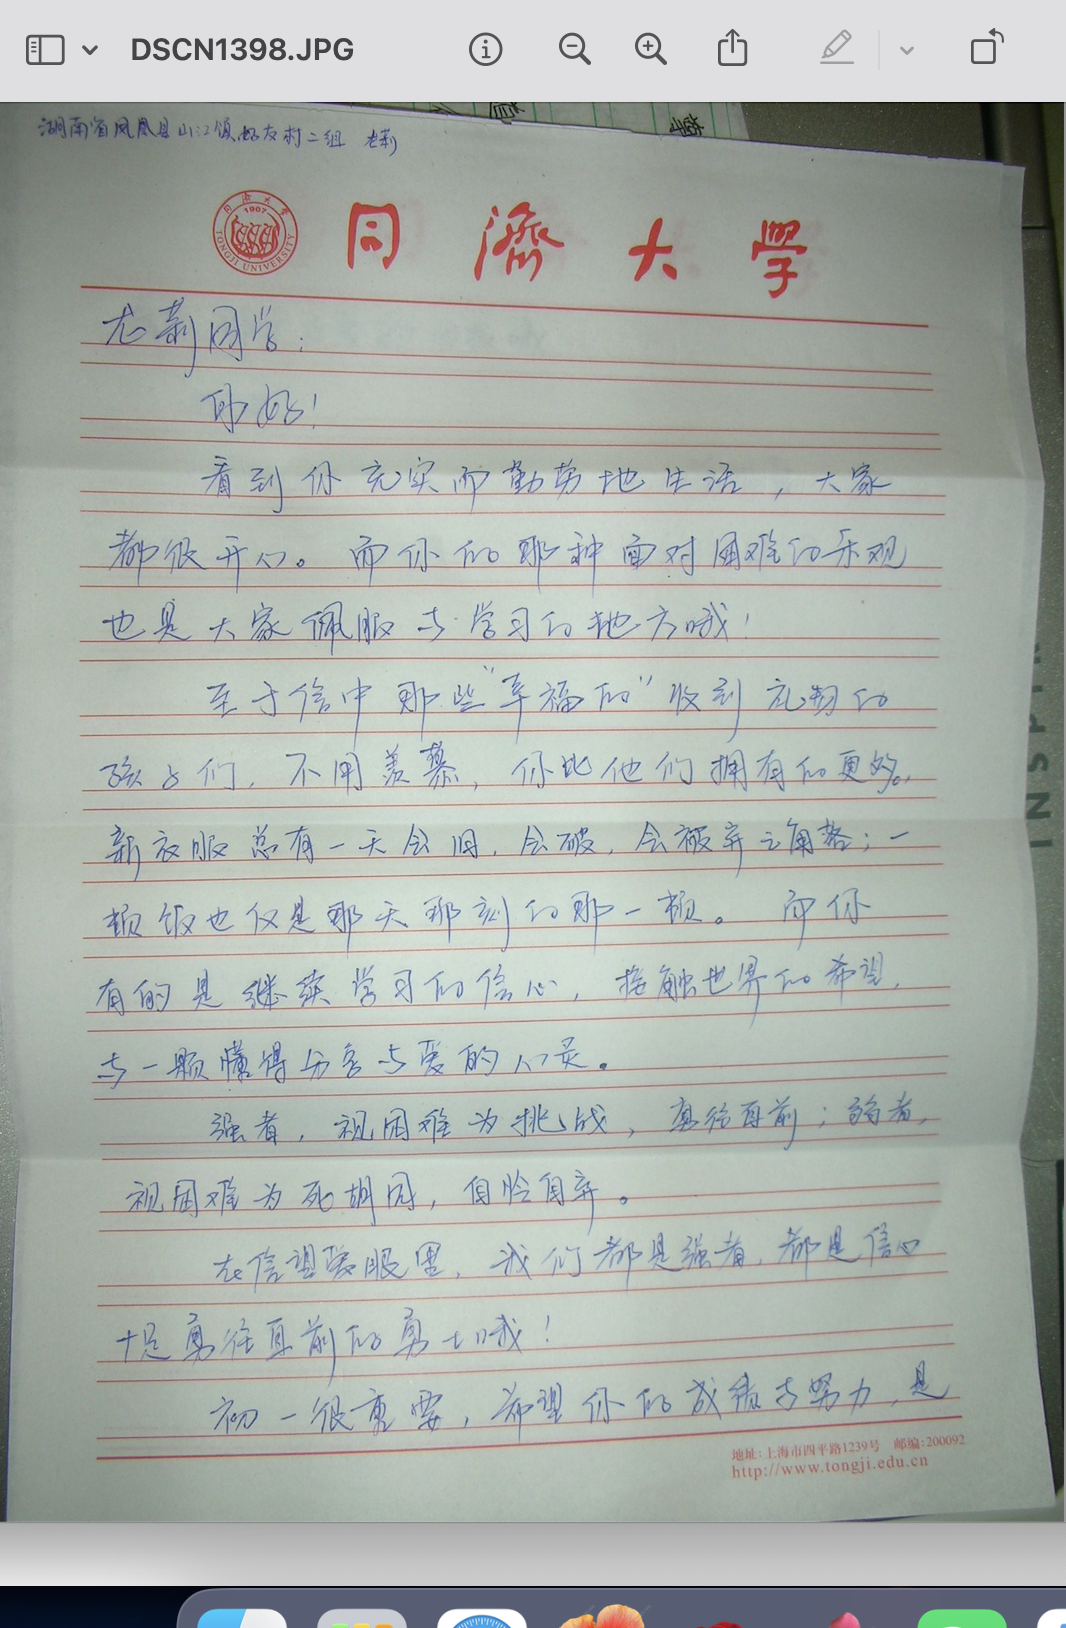 DSCN1398.JPG
湖南省凤凰县山江镇好友村二组
同济大学
1907
TONGJI UNIVERSITY
同濟大学
同学:
你好!
看到你充实而勤劳地生活,大家
都很开心。而你的那种面对困难的乐观
也是大家佩服与学习的地方哦!
至于信中那些"幸福的"收到礼物的
孩子们,不用羡慕,你比他们拥有的更好。
新衣服总有一天会旧,会破,会被弃之角落;一
顿饭也仅是那天那刻的那一顿。而你
有的是继续学习的信心,接触世界的希望,
与一颗懂得历害与爱的心灵。
强者,视困难为挑战,勇往直前;弱者,
视困难为死胡同,自怜自弃。
在信望爱眼里,我们都是强者,都是信心
十足勇往直前的勇士哦!
初一很重要,希望你的成绩与努力,是
地址:上海市四平路1239号 邮编:200092
http://www.tongji.edu.cn